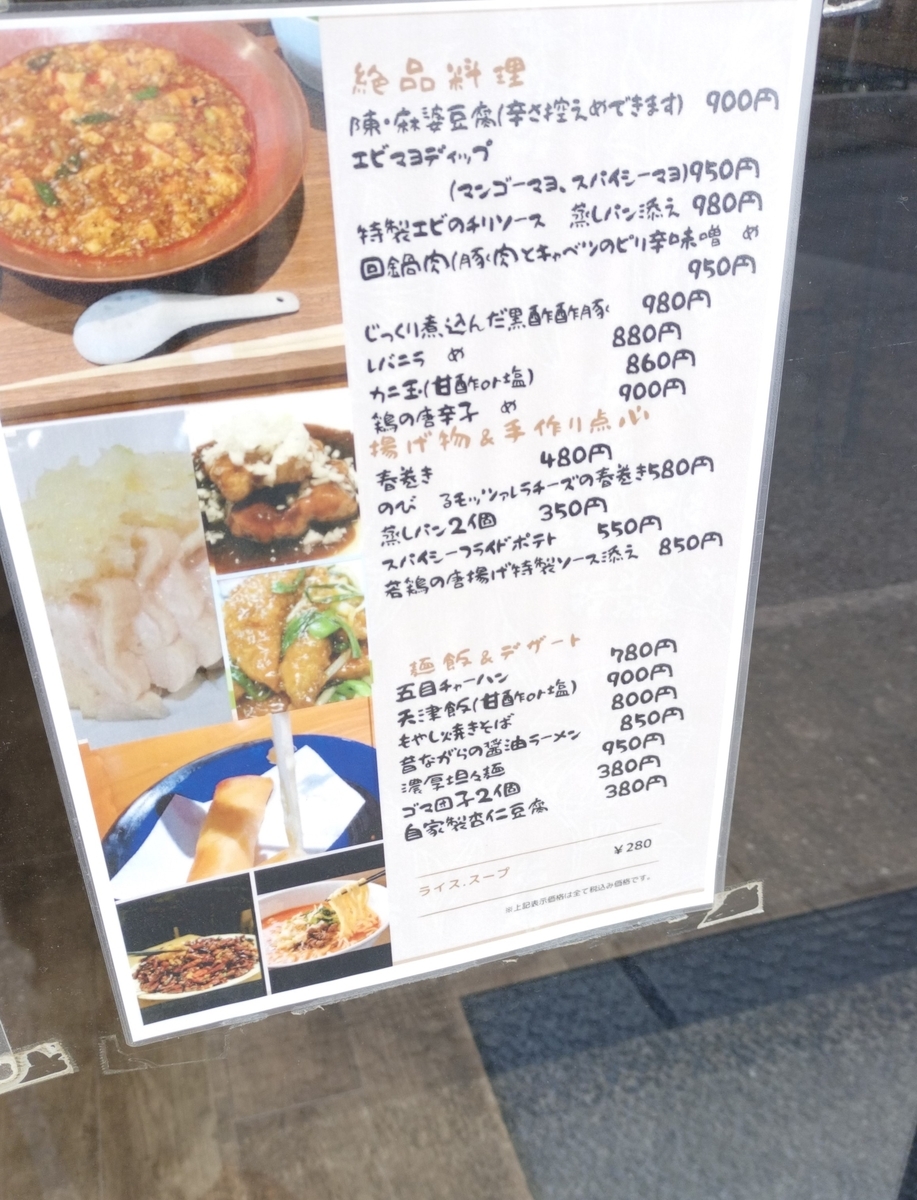 絶品料理
陳・麻婆豆腐(辛さ控えめできます) 900円
エビマヨディップ
(マンゴーマヨ、スパイシーマヨ)950円
特製エビのチリソース 蒸しパン添え 980円
回鍋肉(豚肉)とキャベツのピリ辛味噌 め
950円
じっくり煮込んだ黒酢酢豚 980円
レバニラ め 880円
カニ玉(甘酢or塩) 860円
鶏の唐辛子 め 900円
揚げ物&手作り点心
春巻き 480円
のび るモッツァレラチーズの春巻き580円
蒸しパン2個 350円
スパイシーフライドポテト 550円
若鶏の唐揚げ特製ソース添え 850円
麺飯&デザート
五目チャーハン 780円
天津飯(甘酢or塩) 900円
もやし焼きそば 800円
昔ながらの醤油ラーメン 850円
濃厚坦々麺 950円
ゴマ団子2個 380円
自家製杏仁豆腐 380円
ライス.スープ ¥280
※上記表示価格は全て税込み価格です。